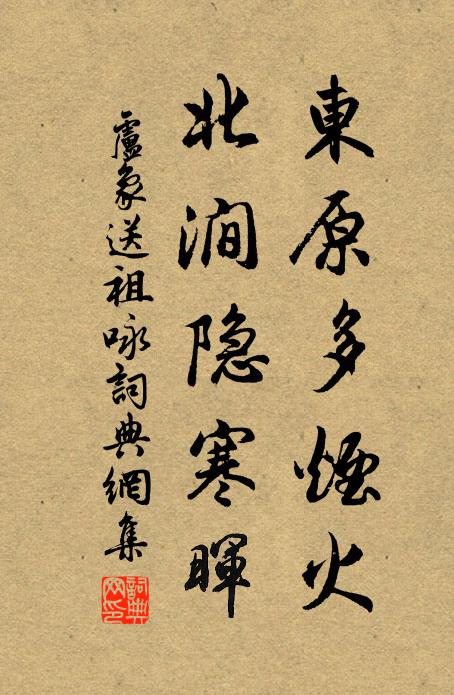 東原多煙火
北澗隐寒暉
盧象送祖咏詞典網集
詞典網印